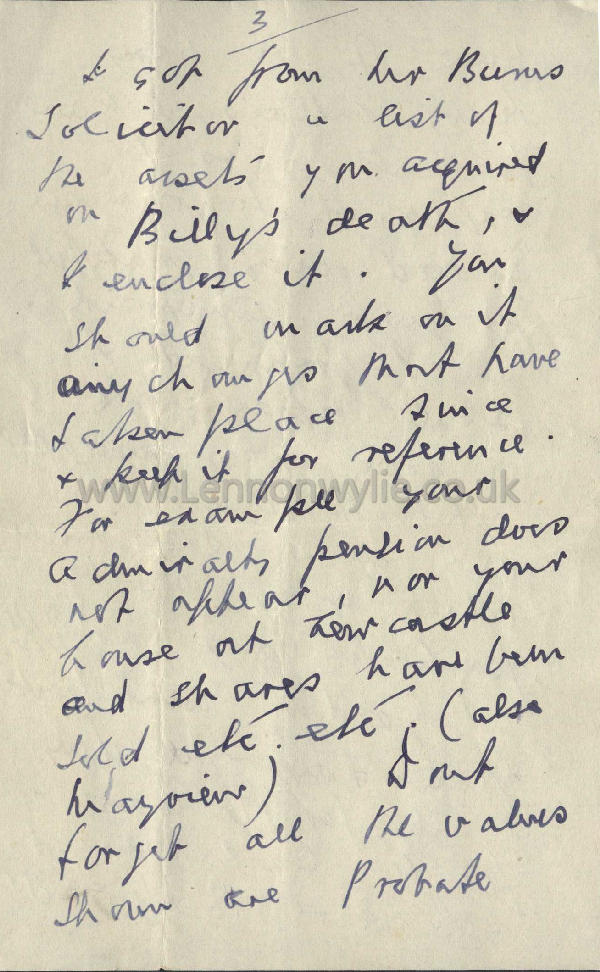 3
I got from Mr Burns
Solicitor a list of
the assets you acquired
on Billy's death, &
I enclose it. You
should mark on it
any changes that have
taken place since
& keep it for reference.
www.Lennonwylie.co.uk
For example your
Admiralty pension does
not appear, nor your
house at Newcastle
and shares have been
sold etc. etc. (also
Mayview) Dont
forget all the values
shown are Probate